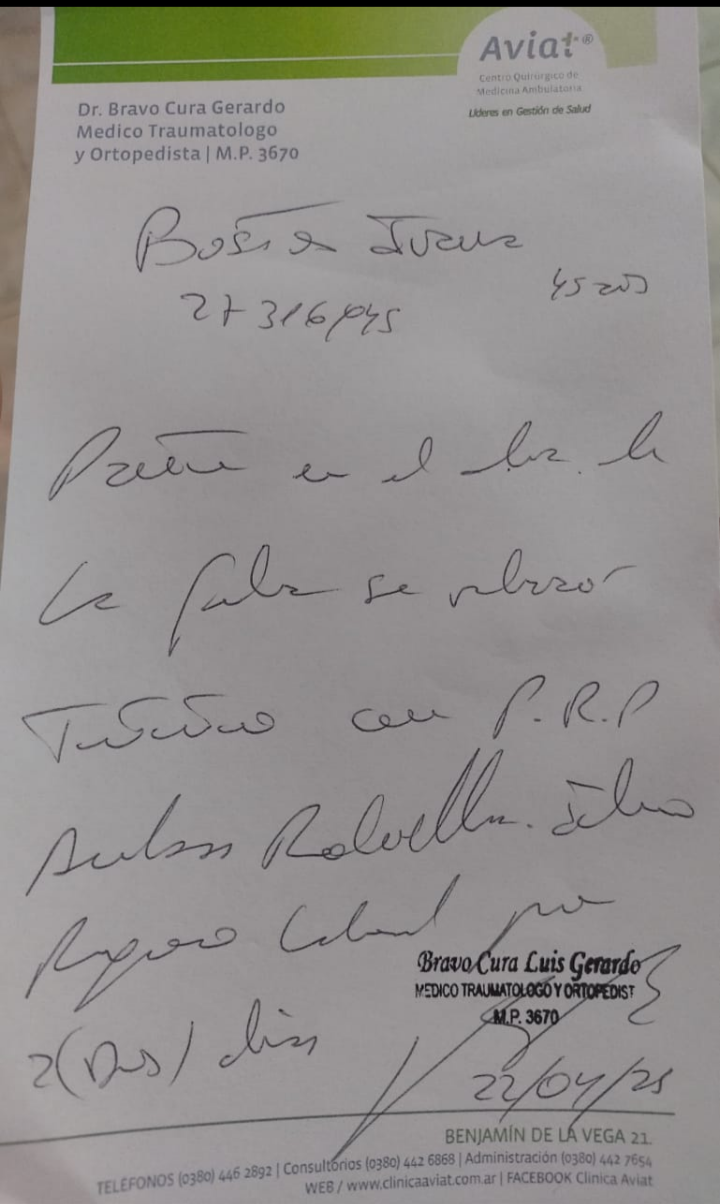 Aviat®
Centro Quirúrgico de
Medicina Ambulatoria
Líderes en Gestión de Salud
Dr. Bravo Cura Gerardo
Medico Traumatologo
y Ortopedista | M.P. 3670
45 años
Paciente en el día de
la fecha se realizó
Tratamiento con P.R.P
Ambas Rodillas.
Reposo Laboral por
2 (Dos) días
Bravo Cura Luis Gerardo
MEDICO TRAUMATOLOGO Y ORTOPEDIST
M.P. 3670
22/04/25
BENJAMÍN DE LA VEGA 21.
TELEFONOS (0380) 446 2892 | Consultorios (0380) 442 6868 | Administración (0380) 442 7654
WEB / www.clinicaaviat.com.ar | FACEBOOK Clinica Aviat